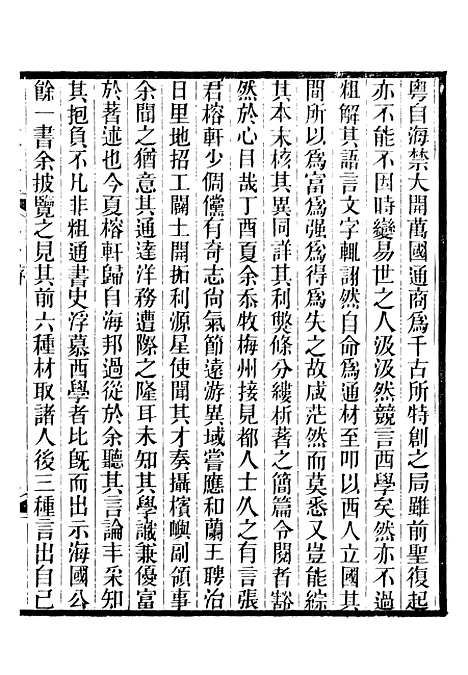 粵自海禁大開萬國通商爲千古所特創之局雖前聖復起
亦不能不因時變易世之人汲汲然競言西學矣然亦不過
粗解其語言文字輒詡然自命爲通材至叩以西人立國其
間所以爲富爲強爲得爲失之故咸茫然而莫悉又豈能綜
其本末核其異同詳其利弊條分縷析著之簡篇令閱者豁
然於心目哉丁酉夏余忝牧梅州接見都人士久之有言張
君榕軒少倜儻有奇志尙氣節遠游異域嘗應和蘭王聘治
日里地招工闢土開拓利源星使聞其才奏攝檳嶼副領事
余聞之猶意其通達洋務遭際之隆耳未知其學識兼優富
於著述也今夏榕軒歸自海邦過從於余聽其言論丰采知
其抱負不凡非粗通書史浮慕西學者比旣而出示海國公
餘一書余披覽之見其前六種材取諸人後三種言出自己